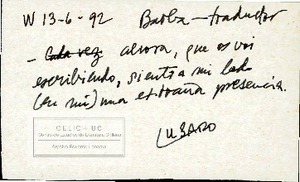 W 13-6-92 Barba-traductor
- Cada vez ahora, que es voi
escribiendo, siento a mi lado
(en mi) una extraña presencia.
CELICH UC